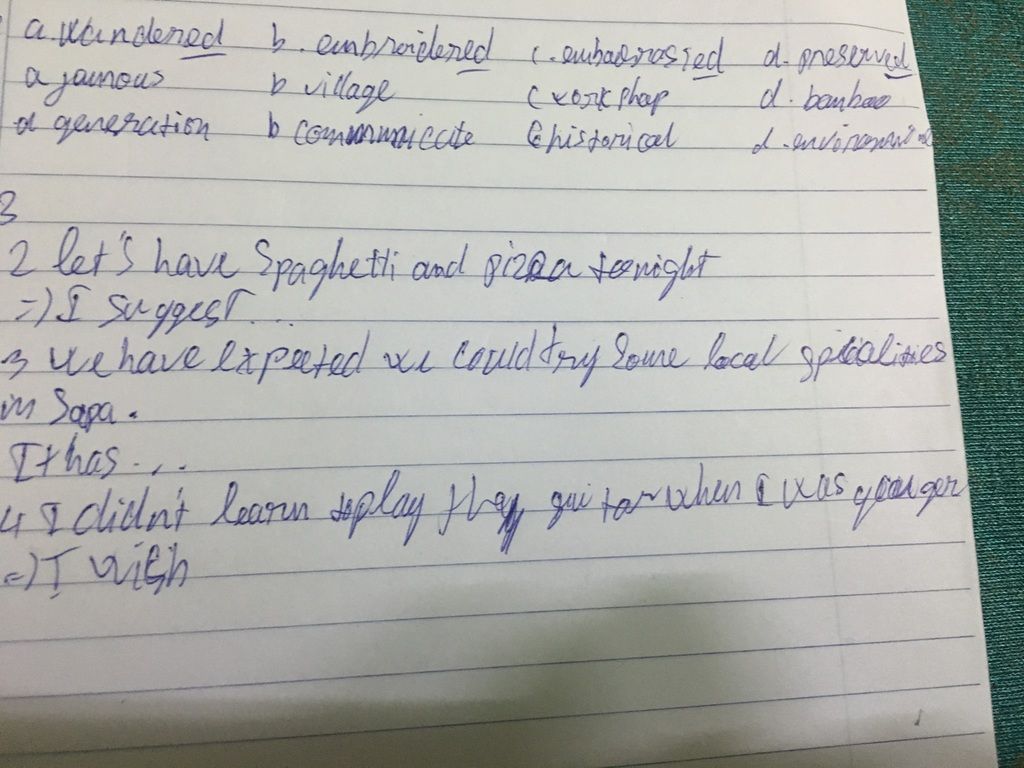 a. wandered b. embroidered c. embarrassed d. preserved
a famous b village c workshop d. bamboo
a generation b communicate c historical d. environmental
3
2 let's have Spaghetti and pizza tonight
=) I suggest...
3 we have expected we could try some local specialities
in Sapa.
It has ...
4 I didn't learn to play the guitar when I was younger
=) I wish